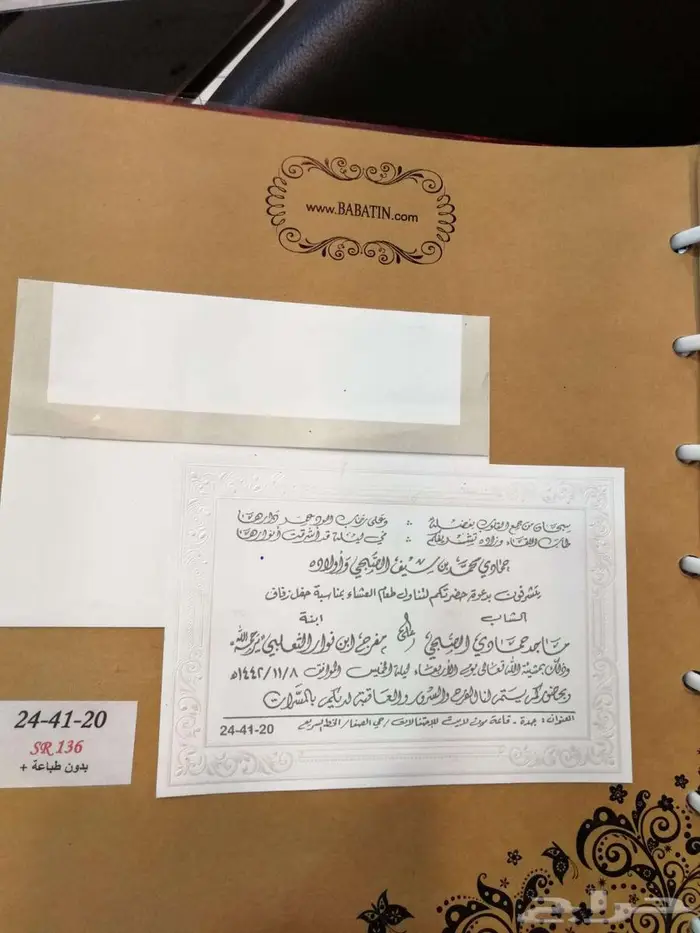 www.BABATIN.com
سبحان من جمع القلوب بفضله : وعلى رحاب الود عمر دارهنا
طاب اللقاء وزاده تشريفكم : في ليلة قد أشرقت أنوارهنا
حمادي محمد بن سيف الصبحي وأولاده
يتشرفون بدعوة حضرتكم لتناول طعام العشاء بمناسبة حفل زفاف
الشاب ابنة
ماجد حمادي الصبحي على مفرح ابن نوار الثعلبي يرحمه الله
وذلك بمشيئة الله تعالى يوم الأربعاء ليلة الخميس الموافق ١٤٤٢/١١/٨هـ
وبحضوركم يتم لنا الفرح والسرور والعاقبة لديكم بالمسرات
العنوان: جدة - قاعة لايت للإحتفالات / حي الصفا / الخط السريع
24-41-20
24-41-20
SR 136
بدون طباعة +
حراج